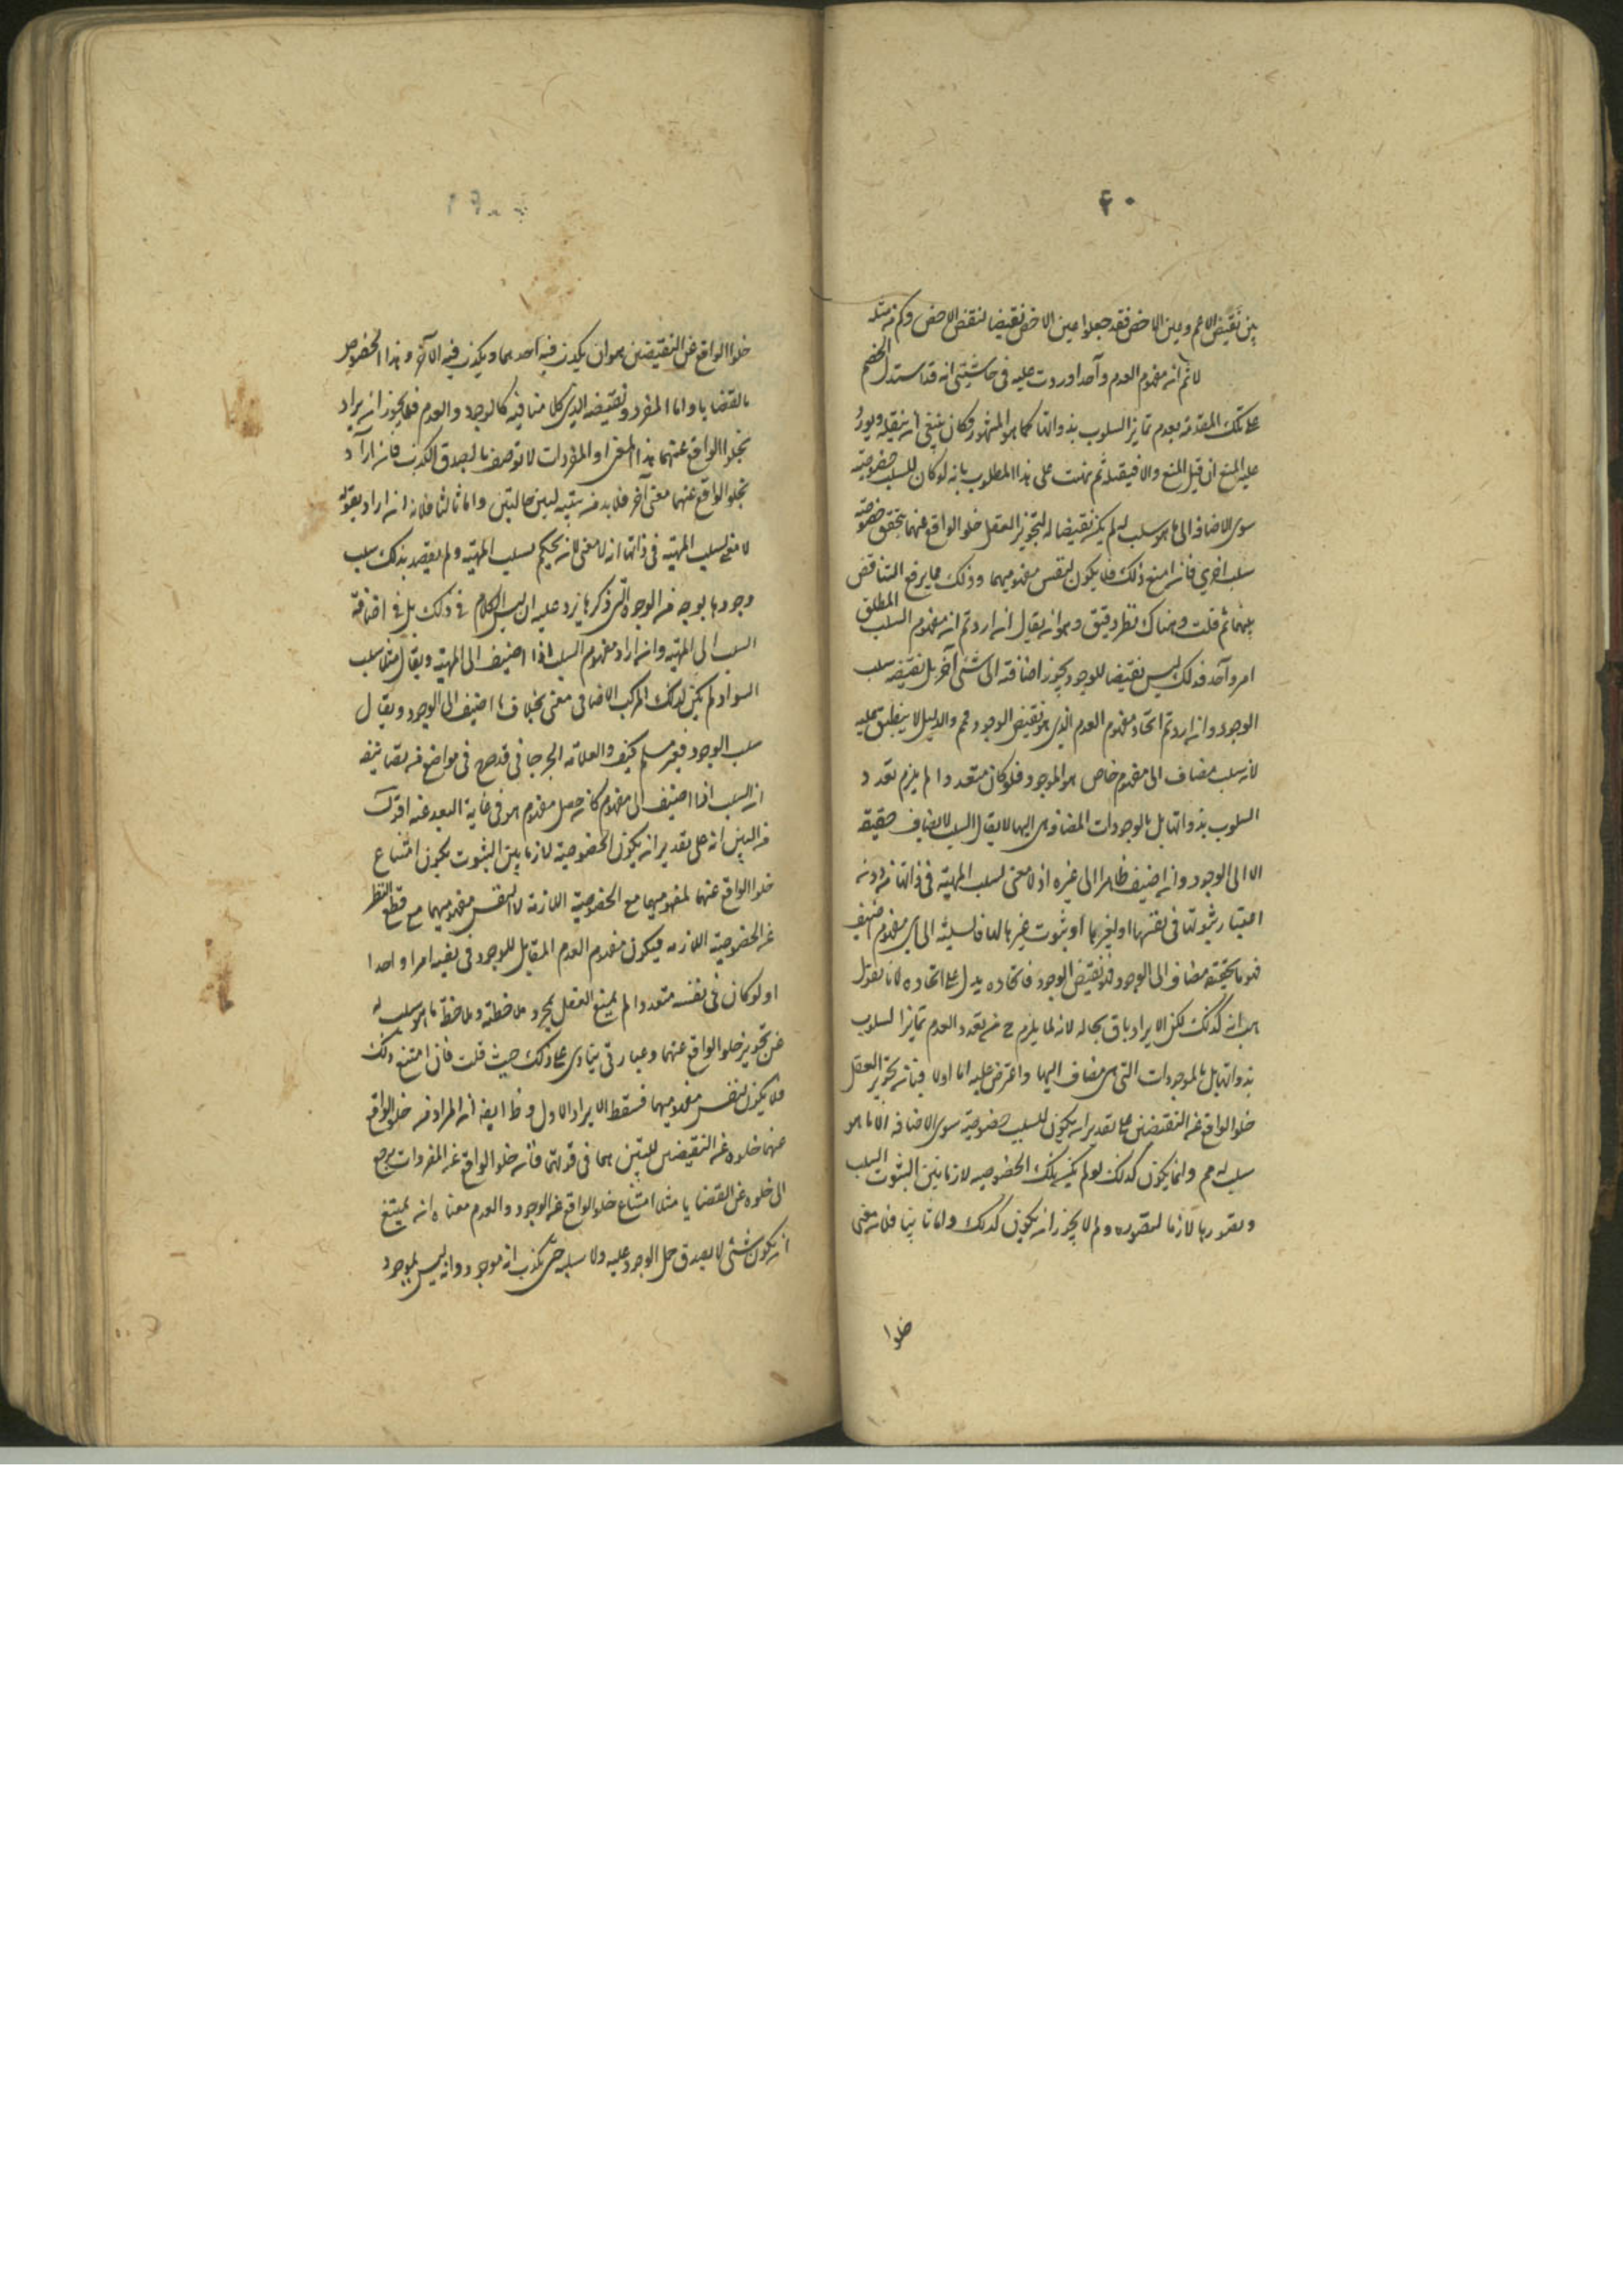 ٤٠
بين نقيض الاعم وعين الاخص فقد جعلوا عين الاخص نقيضا لنقيض الاخص وكم من مثله
لا ثم ان مفهوم العدم واحد اوردت عليه في حاشيتي انه قد استدل الخصم
على تلك المقدمة بعدم تمايز السلوب بذواتها كما هو المشهور فكان ينبغي ان ينقله ويورد
عليه المنع ان قبل المنع والا فيقبله ثم نبهت على هذا المطلوب بانه لو كان للسلب خصوصية
سوى الاضافة الى ما هو سلب له لم يكن نقيضا له لتجويز العقل خلو الواقع عنهما بتحقق خصوصية
سلب اخرى فان امتنع ذلك فلا يكون لنفس مفهوميهما وذلك مما يرفع التناقض
بينهما ثم قلت وهناك نظر دقيق وهو ان يقال ان اردتم ان مفهوم السلب المطلق
امر واحد فذلك ليس نقيضا للوجود يجوز اضافته الى شئ آخر بل نقيضه سلب
الوجود وان اردتم اتحاد مفهوم العدم الذي هو نقيض الوجود فمم والدليل لا ينطبق عليه
لانه سلب مضاف الى مفهوم خاص هو الوجود فلو كان متعددا لم يلزم تعدد
السلوب بذواتها بل بالوجودات المضاف هي اليها لا يقال السلب لا يضاف حقيقة
الا الى الوجود وان اضيف ظاهرا الى غيره اذ لا معنى لسلب المهية في ذاتها من دون
اعتبار ثبوتها في نفسها او لغيرها او ثبوت غيرها لها فالسلب الى اي مفهوم اضيف
فهو بالحقيقة مضاف الى الوجود فهو نقيض الوجود فاتحاده يدل على اتحاده لانا نقول
هب انه كذلك لكن الايراد باق بحاله لانه لما يلزم ح من تعدد العدم تمايز السلوب
بذواتها بل بالموجودات التي هي مضاف اليها واعترض عليه اما اولا فبان تجويز العقل
خلو الواقع عن النقيضين على تقدير ان يكون للسلب خصوصية سوى الاضافة الى ما هو
سلب له مم وانما يكون كذلك لو لم يكن تلك الخصوصية لازما بين الثبوت السلب
وتصورها لازما لتصوره ولم لا يجوز ان يكون كذلك واما ثانيا فلان معنى
خلوا
خلو الواقع عن النقيضين هو ان يكون فيه احدهما ويكون فيه الآخر وهذا مخصوص
بالقضايا واما المفرد ونقيضه الذي كل منافيه كالوجود والعدم فلا يجوز ان يراد
بخلو الواقع عنهما هذا المعنى او المفردات لا توصف بالصدق والكذب فان اراد
بخلو الواقع عنهما معنى آخر فلا بد من تبيينه ليبين حاله واما ثالثا فلانه ان اراد بقوله
لا معنى لسلب المهية في ذاتها انه لا معنى لان يحكم بسلب المهية ولم يقصد بذلك سلب
وجودها بوجه من الوجوه التي ذكرها يرد عليه ان ليس الكلام في ذلك بل في اضافة
السلب الى المهية وان اراد مفهوم السلب اذا اضيف الى المهية ويقال مثلا سلب
السواد لم يكن لذلك المركب الاضافي معنى بخلاف ما اضيف الى الوجود ويقال
سلب الوجود فغير مسلم كيف والعلامة الجرجاني قد صرح في مواضع من تصانيفه
ان السلب اذا اضيف الى مفهوم كان حصل مفهوم هو في غاية البعد عنه اقول
من البين انه على تقدير ان يكون الخصوصية لازما بين الثبوت يكون امتناع
خلو الواقع عنهما لمفهوميهما مع الخصوصية اللازمة لا لنفس مفهوميهما مع قطع النظر
عن الخصوصية اللازمة فيكون مفهوم العدم المقابل للوجود في نفسه امرا واحدا
او لو كان في نفسه متعددا لم يمنع العقل بمجرد ملاحظته وملاحظة ما هو سلب له
عن تجويز خلو الواقع عنهما وعبارتي ينادي على ذلك حيث قلت فان امتنع ذلك
فلا يكون لنفس مفهوميهما فسقط الايراد الاول وظ ايضا ان المراد من خلو الواقع
عنهما خلوه عن النقيضين اللتين هما في قوتهما فان خلو الواقع عن المفردات يرجع
الى خلوه عن القضايا مثلا امتناع خلو الواقع عن الوجود والعدم معناه انه يمتنع
ان يكون شئ لا يصدق حمل الوجود عليه ولا سلبه حتى يكذب انه موجود وانه ليس بموجود